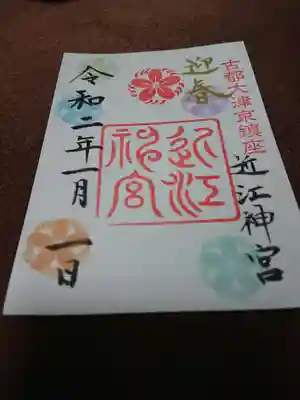 古都大津京鎮座
近江神宮
迎春
近江
神宮
令和二年一月一日